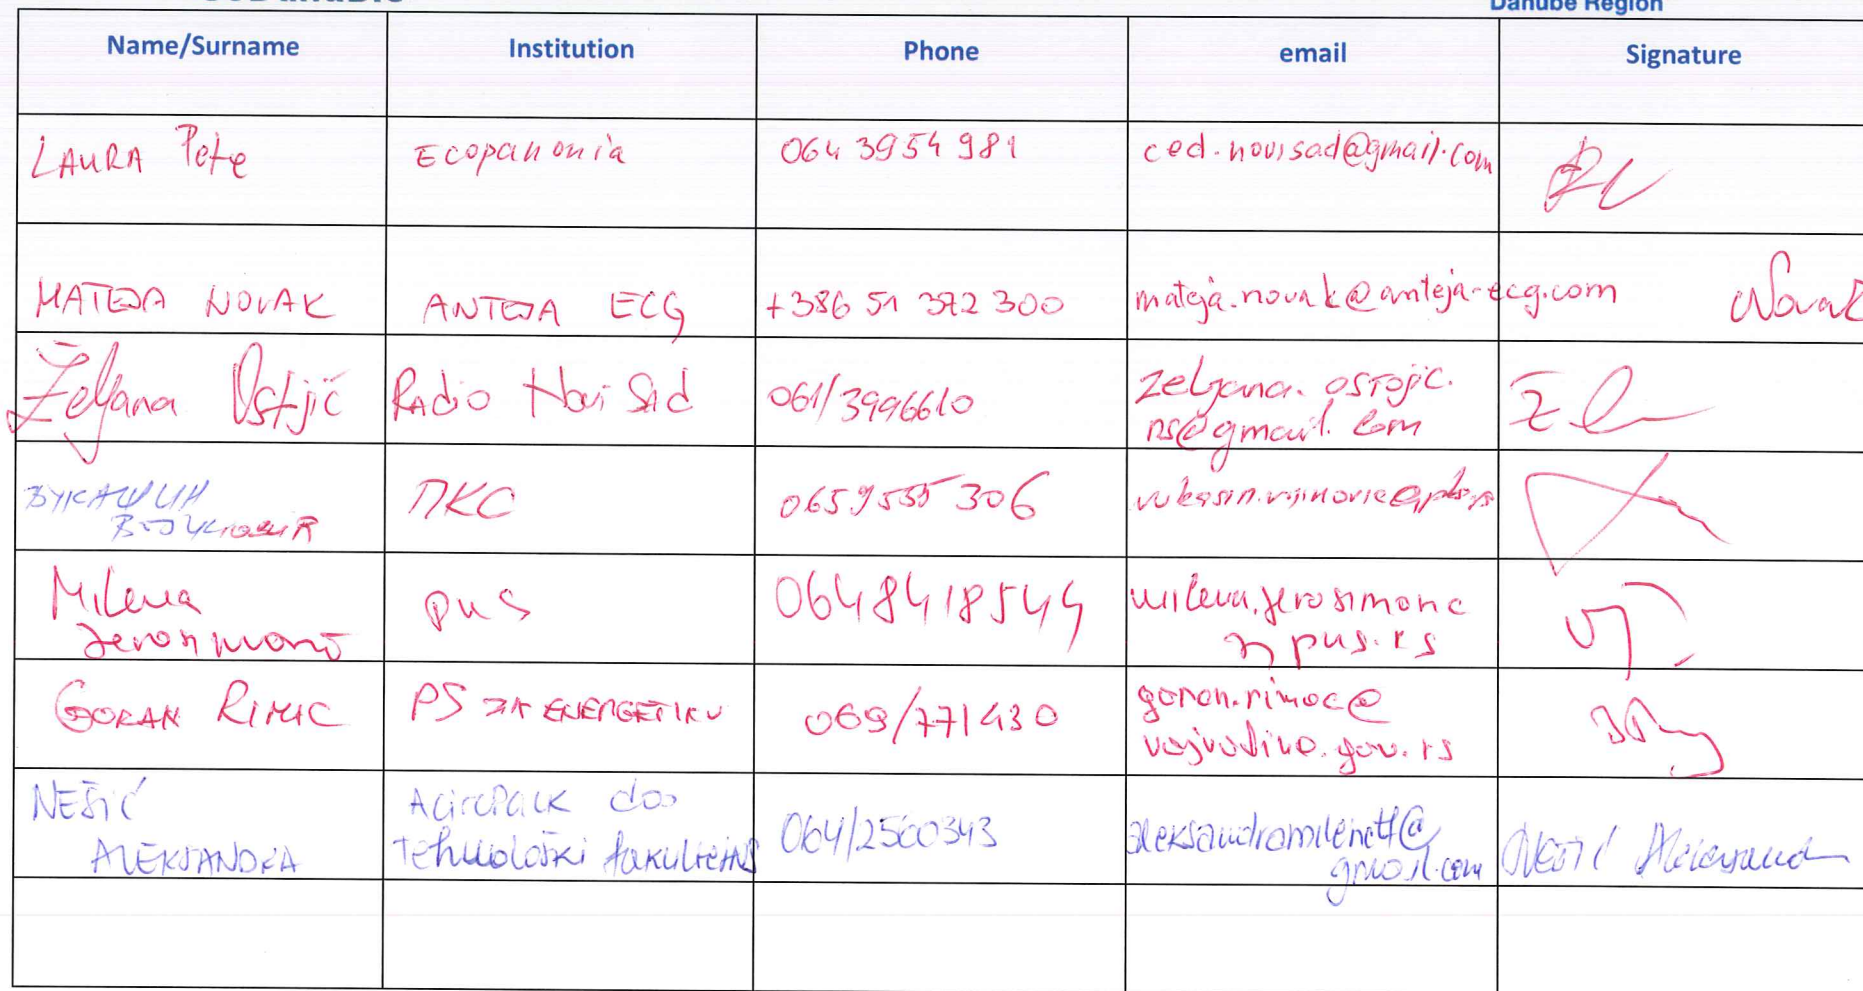 Danube Region
Name/Surname Institution Phone email Signature
LAURA Pete Ecopanonia 064 3954 981 ced.novisad@gmail.com
MATEJA NOVAK ANTEJA ECG +386 51 372 300 mateja.novak@anteja-ecg.com Novak
Željana Ostjić Radio Novi Sad 061/3996610 zeljana.ostojic.
ns@gmail.com
ВУКАШИН ПКС 0659555306
Milena pus 0648418544 milena.jerosimonc
pus.rs
GORAN RIMIC PS ZA ENERGETIKU 069/771430 goran.rimoc@
vojvodina.gov.rs
NEŠIĆ doo
ALEKSANDRA Tehnološki fakultet NS 064/2560343 aleksandramilenatf@
gmail.com Nešić